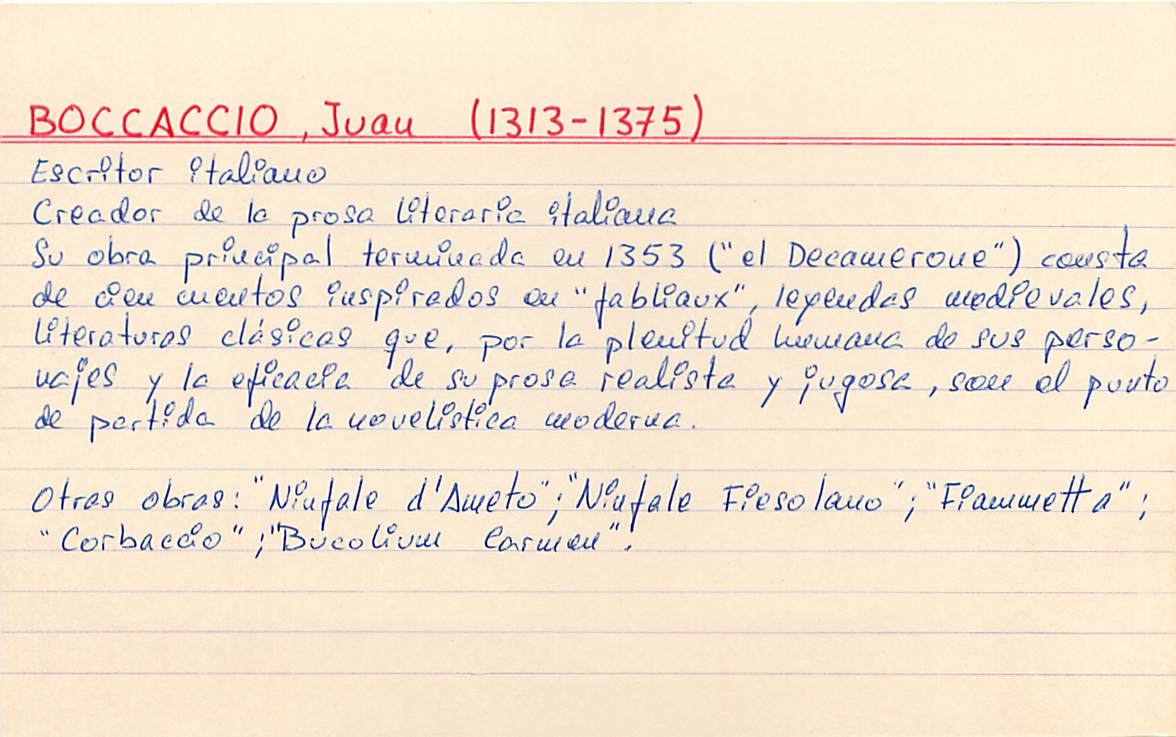 BOCCACCIO, Juan (1313-1375)
Escritor italiano
Creador de la prosa literaria italiana
Su obra principal terminada en 1353 ("el Decamerone") consta
de cien cuentos inspirados en "fabliaux", leyendas medievales,
literaturas clásicas que, por la plenitud humana de sus perso-
najes y la eficacia de su prosa realista y jugosa, son el punto
de partida de la novelística moderna.
Otras obras: "Ninfale d'Ameto"; "Ninfale Fiesolano"; "Fiammetta";
"Corbaccio"; "Bucolium Carmen".